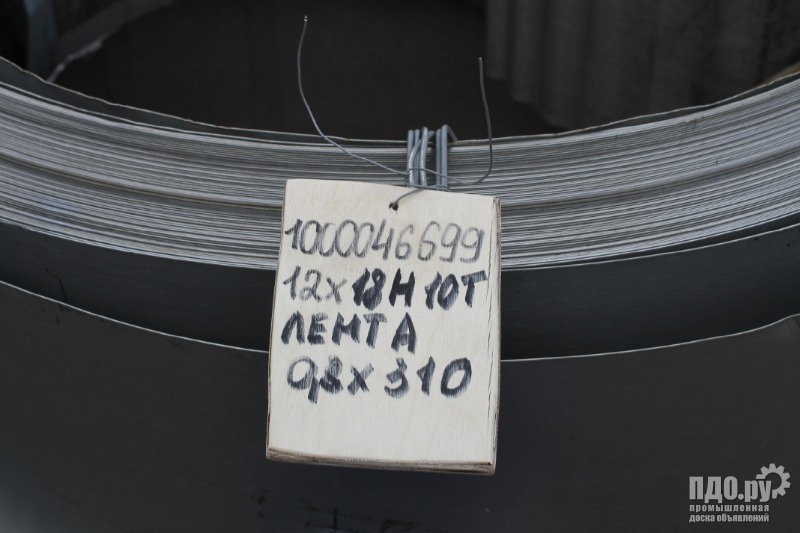 1000046699
12х18Н10Т
ЛЕНТА
0,8х310
ПДО.ру
промышленная
доска объявлений